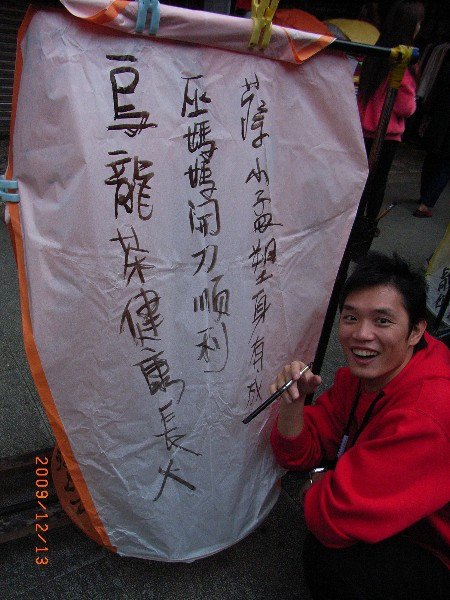 薩小孟塑身有成
巫媽媽開刀順利
烏龍茶健康長大
2009/12/13